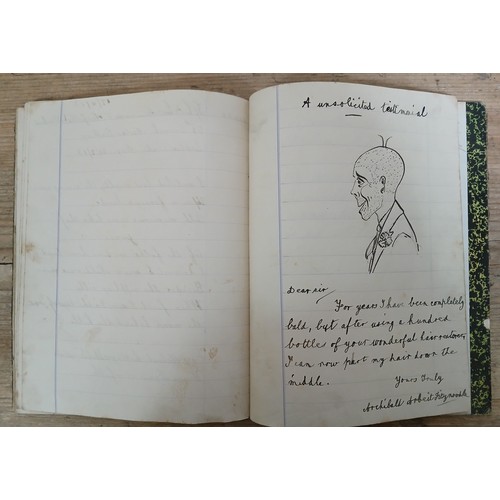 A unsolicited testimonial
Dear sir
For years I have been completely
bald, but after using a hundred
bottles of your wonderful hair restorer,
I can now part my hair down the
middle.
Yours Truly
Archibald